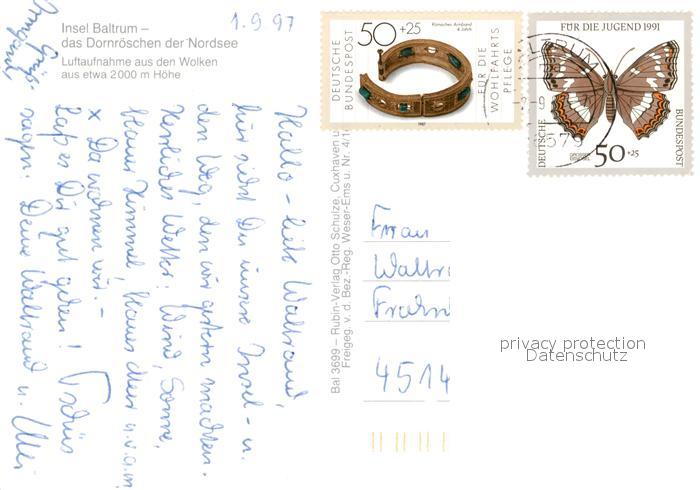 Insel Baltrum –
das Dornröschen der Nordsee
Luftaufnahme aus den Wolken
aus etwa 2000 m Höhe
1.9.97
Hallo – liebe Waltraud,
hier siehst Du unsere Insel – u.
den Weg, den wir gestern machten.
Herrliches Wetter: Wind, Sonne,
blauer Himmel, blaues Meer u.v.a.m.
x Da wohnen wir. –
Laß es Dir gut gehen! Tschüs
sagen: Deine Waltraud u. Ulli
Grüße
Bal 3699 – Rubin-Verlag Otto Schulze, Cuxhaven u
Freigeg. v. d. Bez.-Reg. Weser-Ems u. Nr. 4/1
DEUTSCHE
BUNDESPOST
50+25
Römisches Armband
4. Jahrh.
FÜR DIE
WOHLFAHRTS
PFLEGE
1987
FÜR DIE JUGEND 1991
DEUTSCHE
BUNDESPOST
50+25
Frau
Waltr
4514
privacy protection
Datenschutz